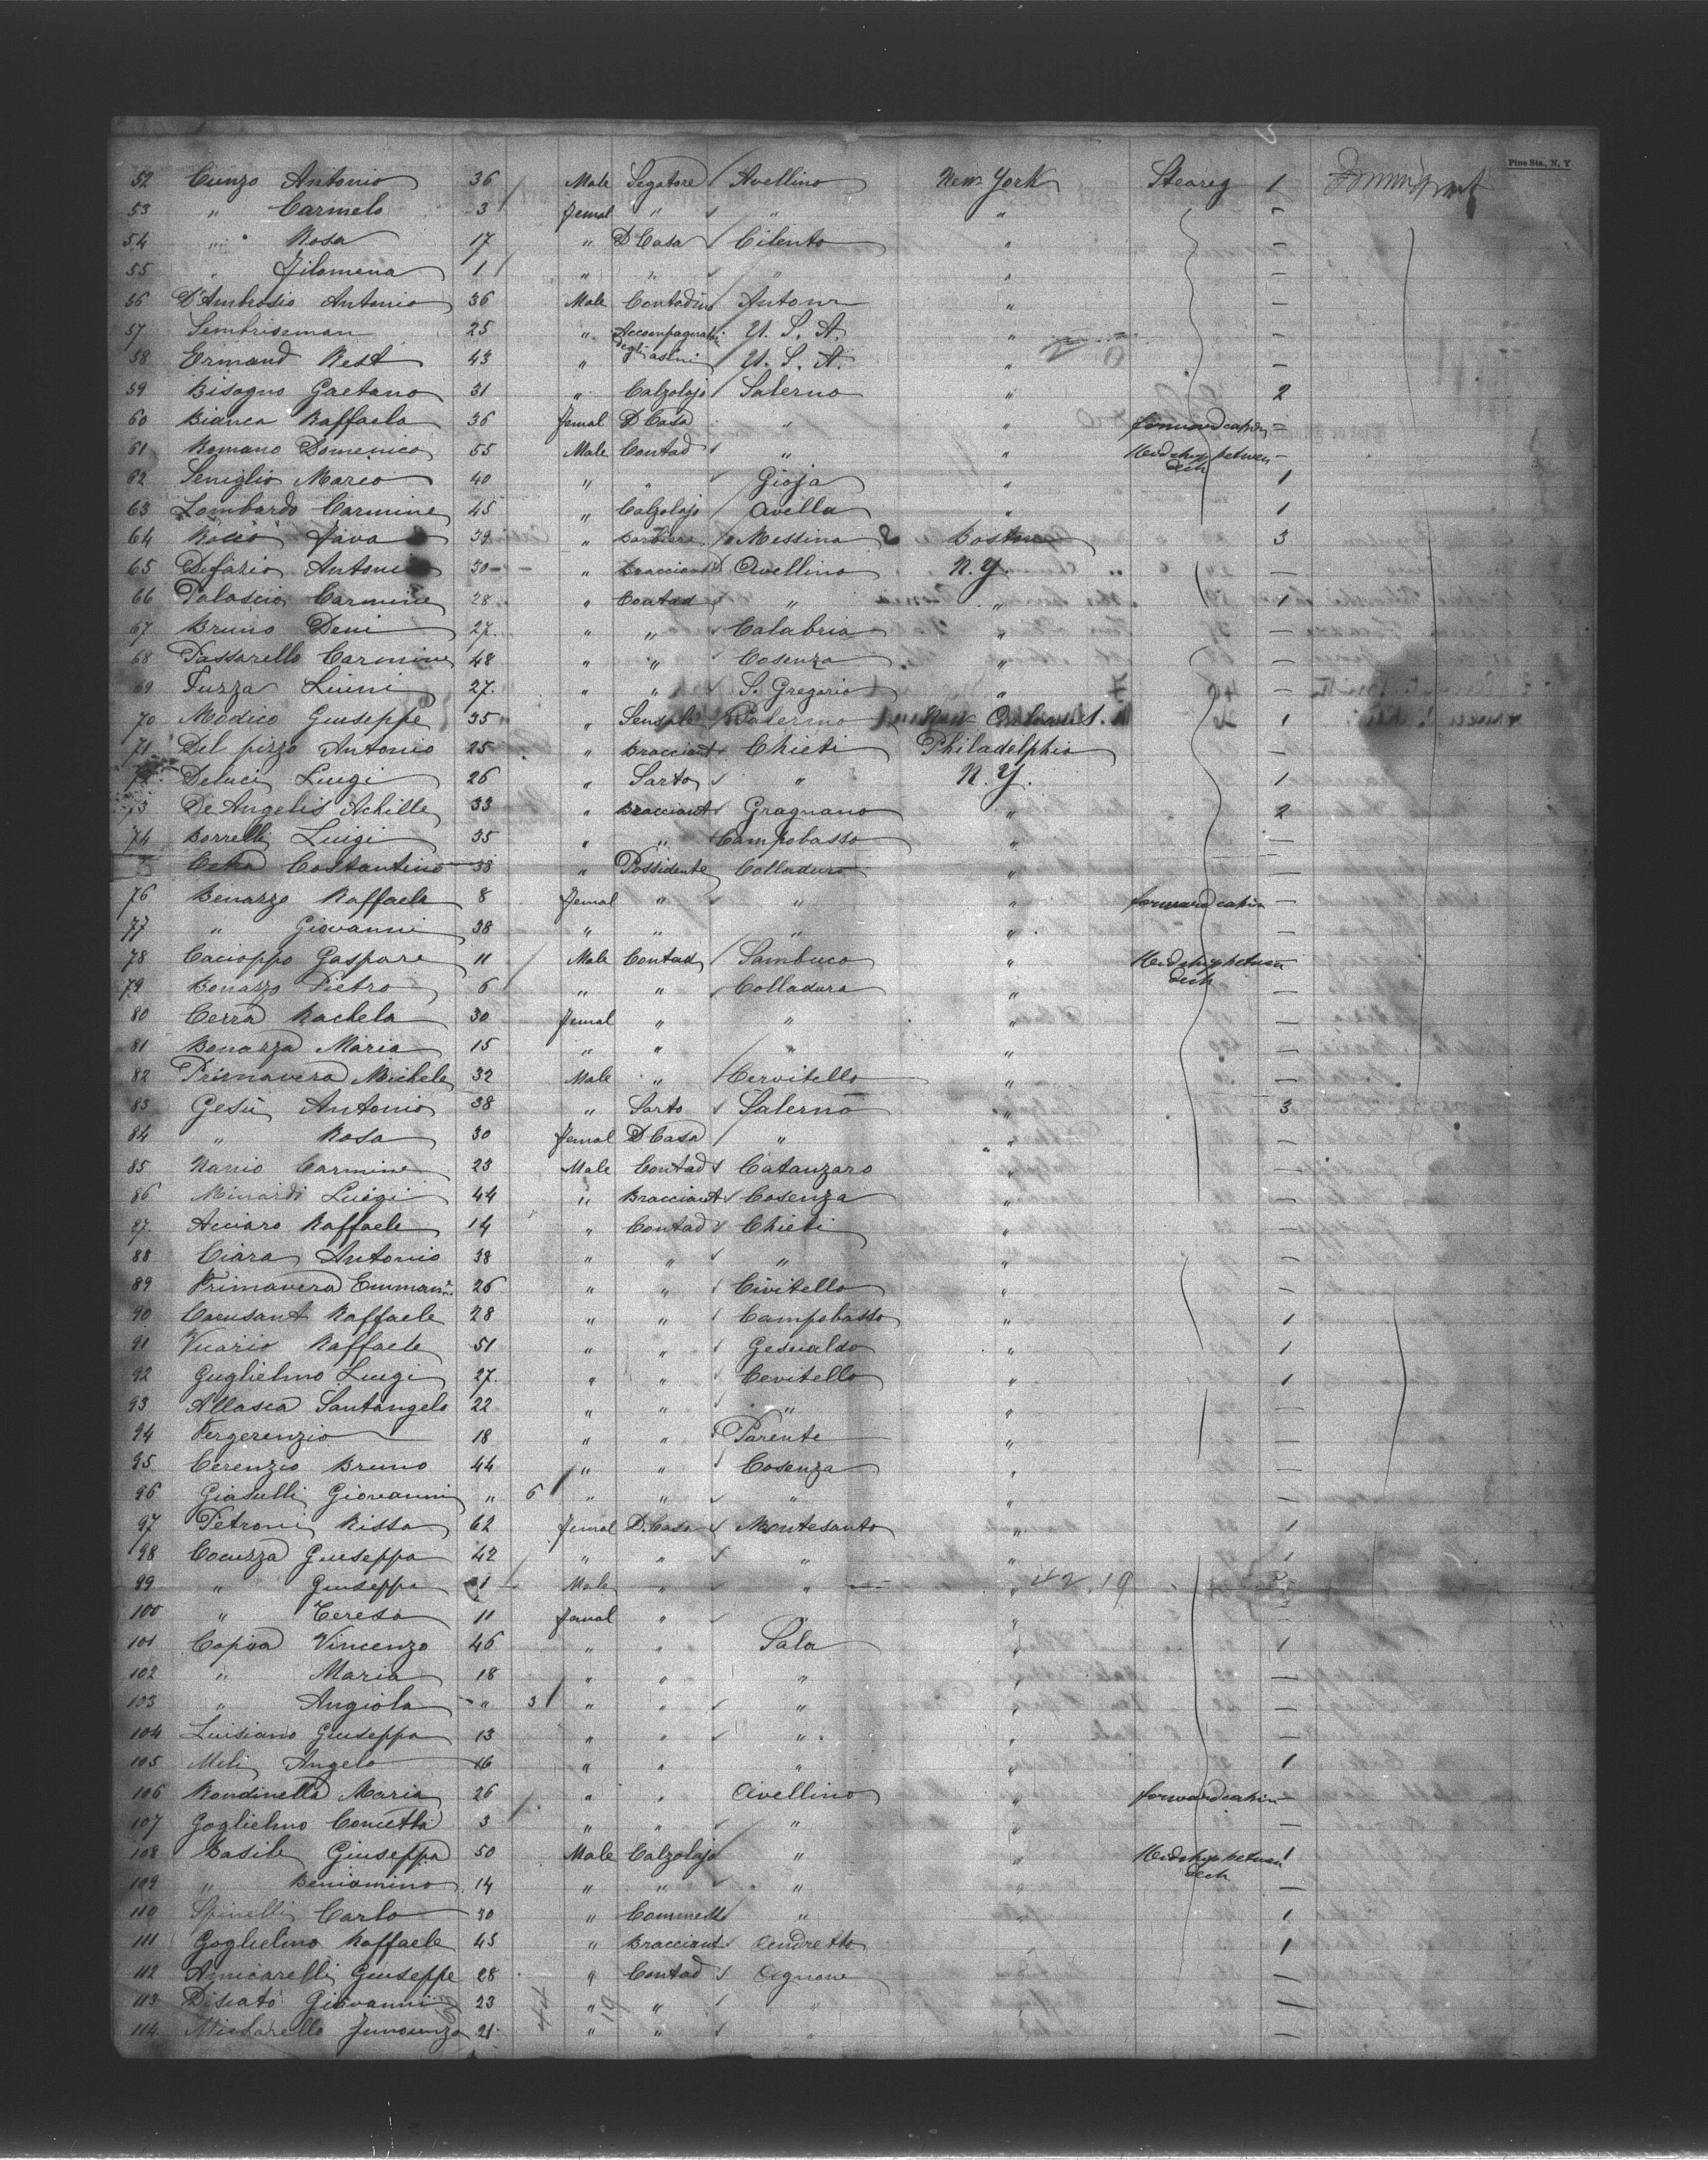 Pine Sts., N. Y
52 Cunzo Antonio 36 Male Segatore Avellino New York Steareg 1
53 " Carmelo 3 Femal " " " –
54 " Rosa 17 " D Casa Cilento " –
55 " Filomena 1 " " " " –
56 D'Ambrosio Antonio 36 Male Contadino "  –
57 Sembriseman 25 " Accompagnatori U. S. A. " –
58 Ermand Rest 43 " degli asini U. S. A. " –
59 Bisogno Gaetano 31 " Calzolajo Salerno " 2
60 Bianca Raffaela 36 Femal D Casa " " forward cabin –
61 Romano Domenico 55 Male Contad " " Midship between deck –
62 Seniglio Marco 40 " " Gioja " 1
63 Lombardo Carmine 45 " Calzolajo Avella " 1
64 Rocco Fava 39 " Barbiere Messina Boston 3
65 Difazio Antonio 30 " Bracciant Avellino N. Y. –
66 Palascio Carmine 28 " Contad " " 1
67 Bruno Deni 27 " " Calabria " –
68 Passarello Carmine 48 " " Cosenza " –
69 Fuzza Luini 27 " " S. Gregorio " –
70 Modico Giuseppe 35 " Sensale Palermo New Orleans 1
71 Del pizzo Antonio 25 " Bracciant Chieti Philadelphia –
Deluci Luigi 26 " Sarto " N. Y. 1
73 De Angelis Achille 33 " Bracciant Gragnano " 2
74 Borrelli Luigi 35 " " Campobasso " –
Costantino 38 " Possidente Colladura " –
76 Benazzo Raffaele 8 Femal " " " forward cabin –
77 " Giovanni 38 " " " " –
78 Cacioppo Gaspare 11 Male Contad Sambuco " Midship between deck –
79 Bonazzo Pietro 6 " " Colladura " –
80 Cerra Rachela 30 Femal " " " –
81 Bonazza Maria 15 " " " " –
82 Primavera Michele 32 Male " Cervitello " –
83 Gesù Antonio 38 " Sarto Salerno " 3
84 " Rosa 30 Femal D Casa " " –
85 Nanio Carmine 23 Male Contad Catanzaro " –
86 Minardi Luigi 44 " Bracciant Cosenza " –
87 Acciaro Raffaele 14 " Contad Chieti " –
88 Ciara Antonio 38 " " " " –
89 Primavera Emman. 26 " " Civitello " –
90 Carusant Raffaele 28 " " Campobasso " 1
91 Vicario Raffaele 51 " " Gesualdo " 1
92 Guglielmo Luigi 27 " " Cevitello " 1
93 Allasca Santangelo 22 " " " " –
94 Pergerenzio 18 " " Parente " –
95 Cerenzio Bruno 44 " " Cosenza " –
96 Giasulli Giovanni " 6 " " " " –
97 Petroni Rissa 62 Femal D. Casa Montesanto " 1
98 Cocuzza Giuseppa 42 " " " " 1
99 " Giuseppe 1 Male " " " 42 19
100 " Teresa 11 Femal " " –
101 Copira Vincenzo 46 " " Sala " 1
102 " Maria 18 " " " " –
103 " Angiola " 3 " " " " –
104 Luisiano Giuseppa 13 " " " " –
105 Meli Angelo 16 " " " " 1
106 Rondinella Maria 26 " " Avellino " forward cabin –
107 Goglielmo Concetta 3 " " " " –
108 Basile Giuseppe 50 Male Calzolajo " " Midship between deck 1
109 " Beniamino 14 " " " " –
110 Spinelli Carlo 30 " Commesso " " 1
111 Goglielmo Raffaele 45 " Bracciant Andretta " 1
112 Amicarelli Giuseppe 28 " Contad Agnone " –
113 Discato Giovanni 23 " " " –
114 Mistarello 21 " " " –
44 19